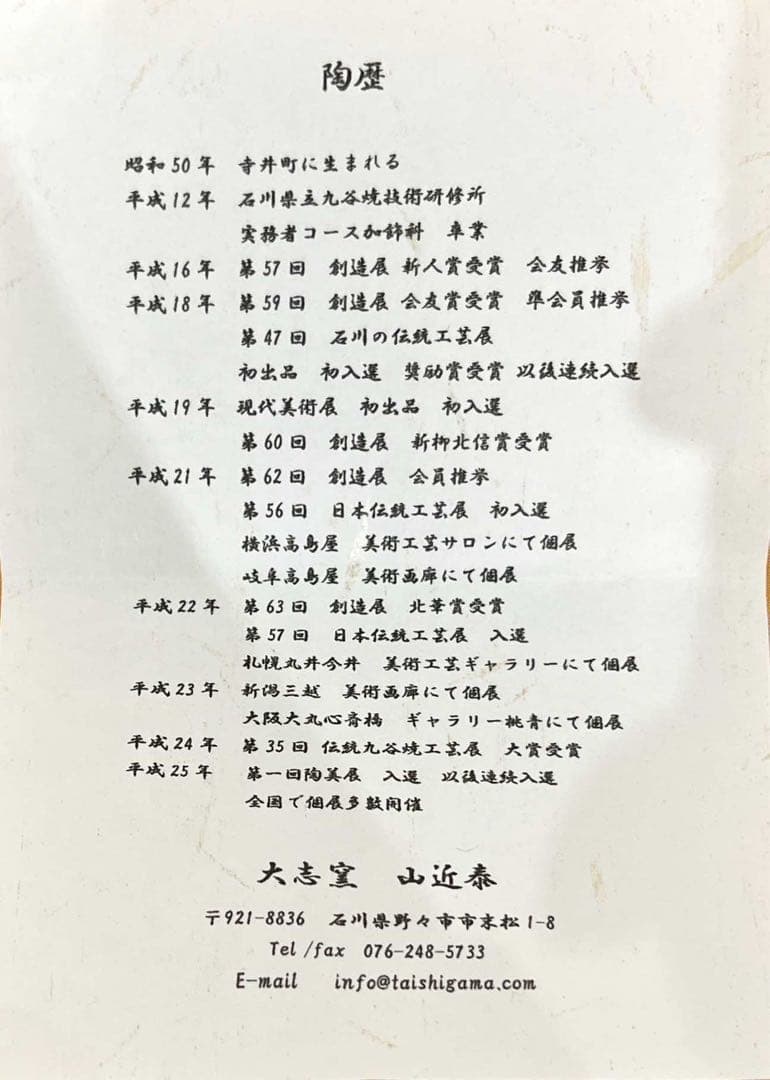 陶歴
昭和50年 寺井町に生まれる
平成12年 石川県立九谷焼技術研修所
実務者コース加飾科 卒業
平成16年 第57回 創造展 新人賞受賞 会友推挙
平成18年 第59回 創造展 会友賞受賞 準会員推挙
第47回 石川の伝統工芸展
初出品 初入選 奨励賞受賞 以後連続入選
平成19年 現代美術展 初出品 初入選
第60回 創造展 新柳北信賞受賞
平成21年 第62回 創造展 会員推挙
第56回 日本伝統工芸展 初入選
横浜高島屋 美術工芸サロンにて個展
岐阜高島屋 美術画廊にて個展
平成22年 第63回 創造展 北華賞受賞
第57回 日本伝統工芸展 入選
札幌丸井今井 美術工芸ギャラリーにて個展
平成23年 新潟三越 美術画廊にて個展
大阪大丸心斎橋 ギャラリー桃青にて個展
平成24年 第35回 伝統九谷焼工芸展 大賞受賞
平成25年 第一回陶美展 入選 以後連続入選
全国で個展多数開催
大志窯 山近泰
〒921-8836 石川県野々市市末松1-8
Tel/fax 076-248-5733
E-mail info@taishigama.com